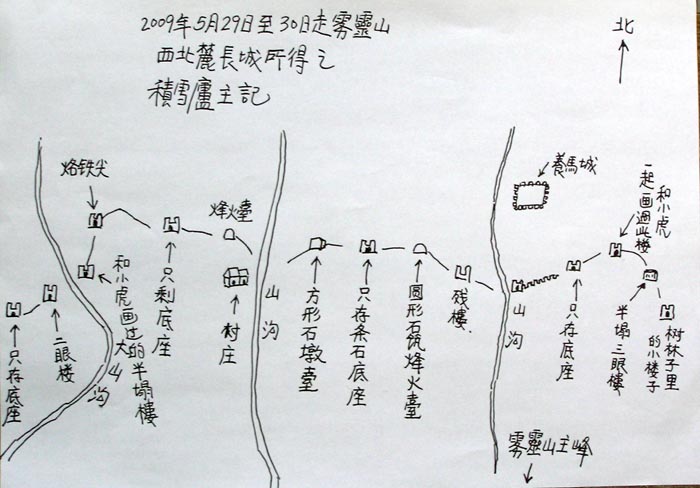 2009年5月29日至30日走雾靈山
西北麓長城所得之
積雪廬主記
北
烙铁尖
烽火臺
養馬城
和小虎
一起画過此樓
只存底座
二眼楼
大山沟
和小虎画过的半塌樓
只剩底座
村庄
山沟
方形石墩臺
只存条石底座
圆形石筑烽火臺
残樓
山沟
只存底座
半塌三眼樓
树林子里
的小楼子
雾靈山主峰